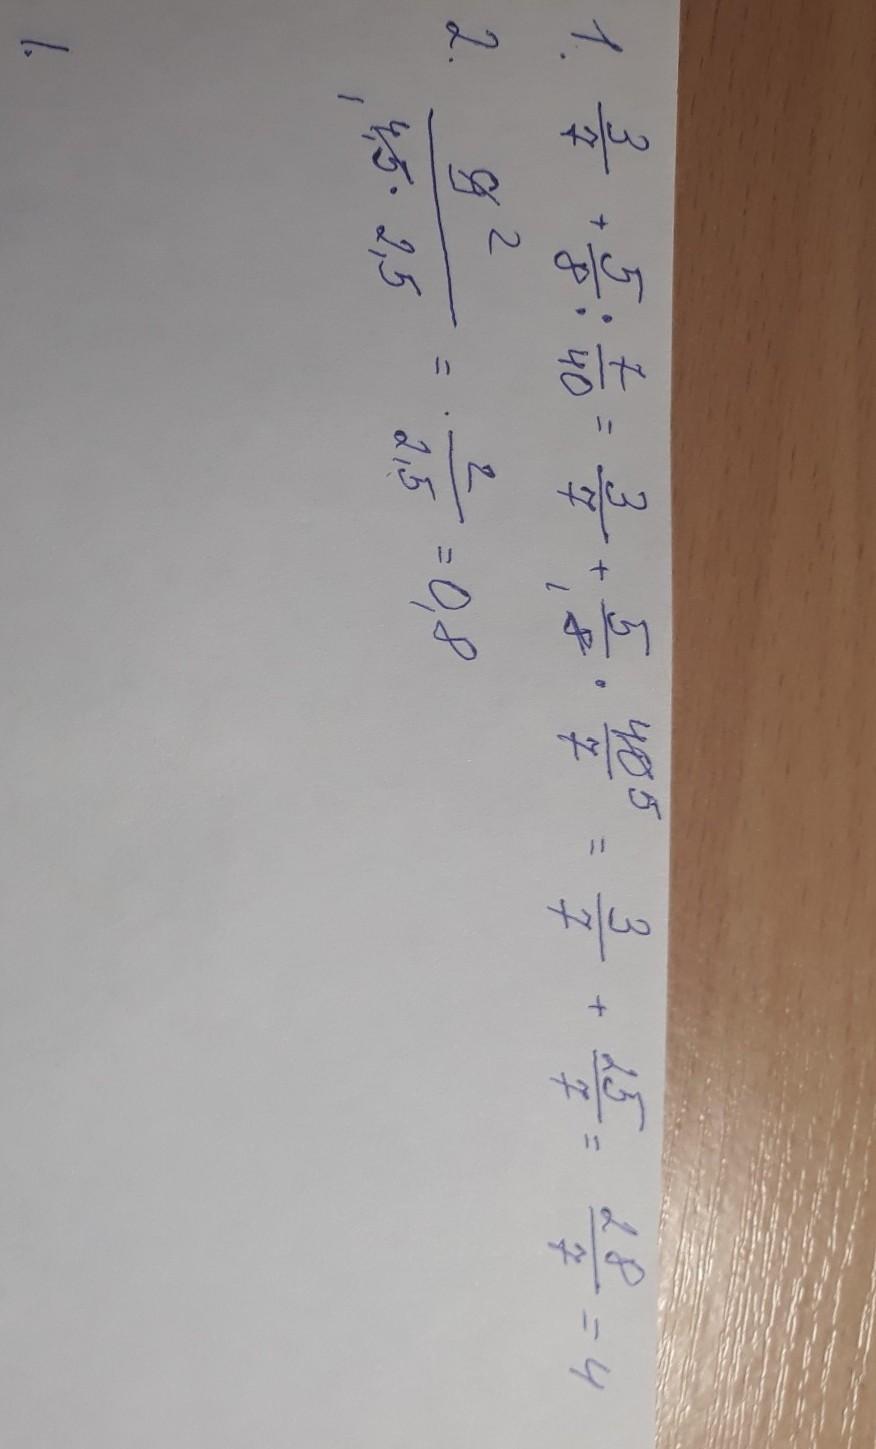 1. 3/7 + 5/8 : 7/40 = 3/7 + 5/8 1 · 40 5/7 = 3/7 + 25/7 = 28/7 = 4
2. 9 2/1 4,5 · 2,5 = 2/2,5 = 0,8
1.